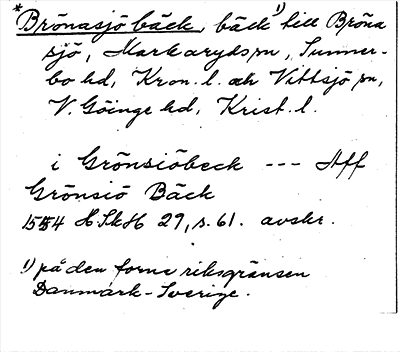 *Brönasjö bäck, bäck¹⁾ till Bröna
sjö, Markaryds sn, Sunner-
bo hd, Kron. l. och Vittsjö sn,
V. Göinge hd, Krist. l.
i Grönsiöbeck --- Aff
Grönsiö Bäck
1554 HSkH 27, s. 61. avskr.
¹⁾ på den forne riksgränsen
Danmark-Sverige.